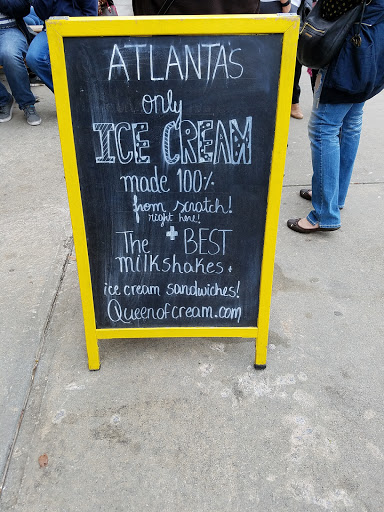 ATLANTA'S
only
ICE CREAM
made 100%
from scratch!
right here!
+
The BEST
milkshakes +
ice cream sandwiches!
Queenofcream.com